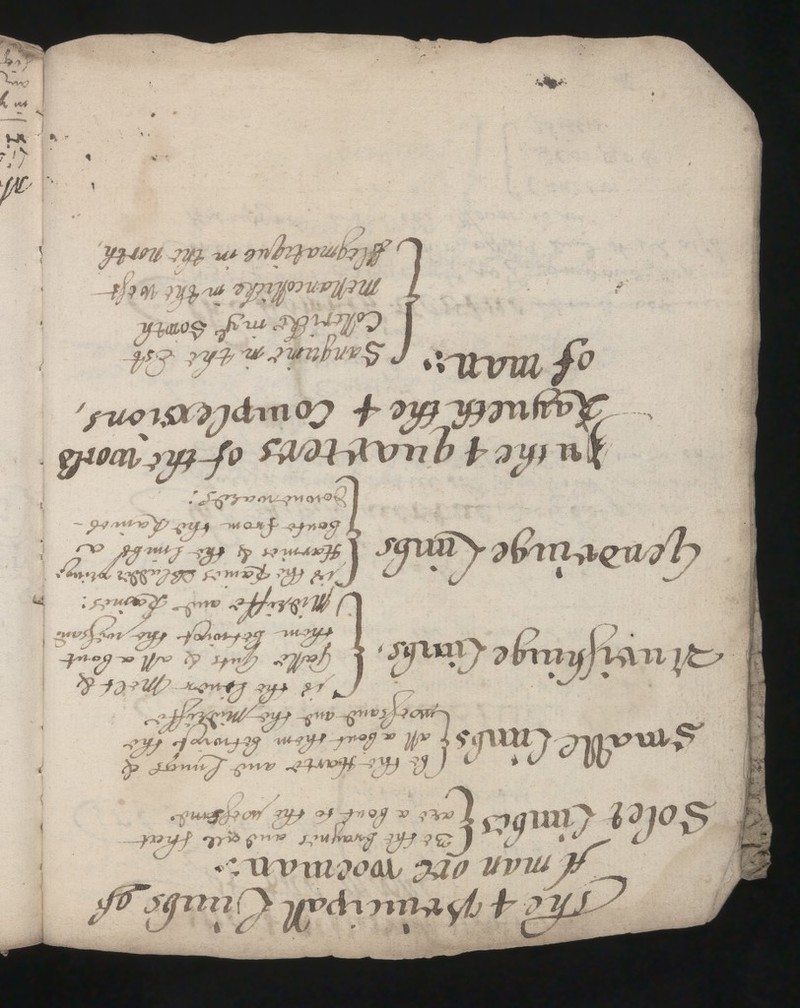 The 4 principall Limbs of
A man ore woeman:
Solet Limbes { Be the braynes and all that
are a bout to the wesand
Smalle Limbs { be the Harte and Lunges &
all a bout them betwixt the
wesand and the midriffe
Nurishinge Limbs, { is the liver Melt &
galle guts & all a bout
them betwixt the wesand
Midriffe and Raines:
Gendringe Limbs { is the Raines
Harnies & the Limbs a
boute from the Raines
downewards:
In the 4 quarters of the world
Rayneth the 4 Complexions,
of man:
Sanguine in the Est
Collericke in ye Sowth
Mellancollicke in the west
flegmatique in the north,